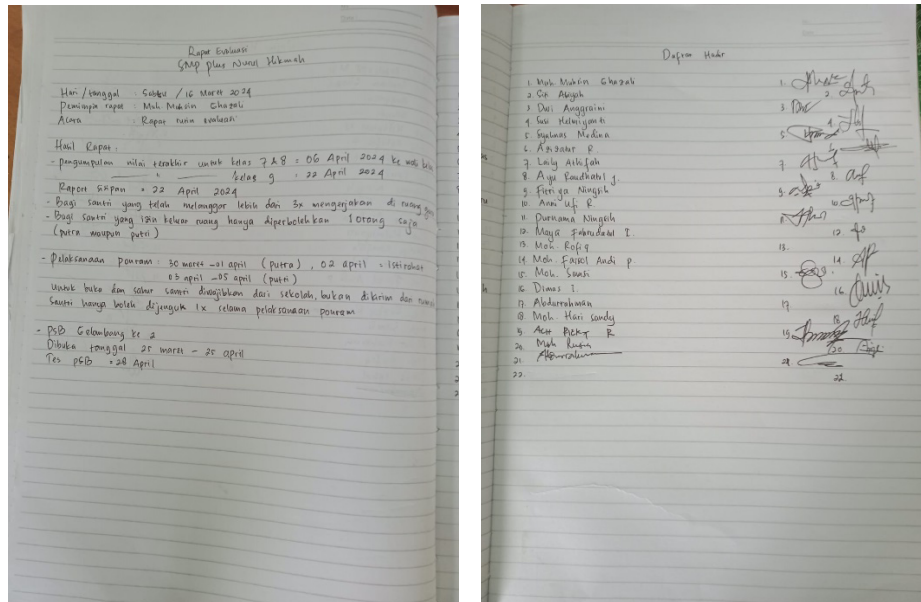 Rapat Evaluasi
SMP plus Nurul Hikmah
Hari / tanggal : Sabtu / 16 Maret 2024
Pemimpin rapat : Moh Muhsin Ghazali
Acara : Rapat rutin evaluasi
Hasil Rapat :
- pengumpulan nilai terakhir untuk kelas 7 & 8 = 06 April 2024 ke wali
kelas 9 : 22 April 2024
Raport SKPan = 22 April 2024
- Bagi santri yang telah melanggar lebih dari 3x mengerjakan di ruang
- Bagi santri yang izin keluar ruang hanya diperbolehkan 1 orang saja
(putra maupun putri)
- Pelaksanaan ponram : 30 maret - 01 april (putra), 02 april = istirahat
03 april - 05 april (putri)
Untuk buka dan sahur santri diwajibkan dari sekolah, bukan dikirim dari
Santri hanya boleh dijenguk 1x selama pelaksanaan ponram
- PSB Gelombang ke 2
Dibuka tanggal 25 maret - 25 april
Tes PSB = 28 April
Daftar Hadir
1. Moh. Muhsin Ghazali 1.
2. Siti Aisyah 2.
3. Dwi Anggraini 3.
4. Susi Helmiyanti 4.
5. Syalnas Medina 5.
6. Azizatur R. 6.
7. Laily Afhifah 7.
8. Ayu Raudhatul J. 8.
9. Fitriya Ningsih 9.
10. Anni Ufi R 10.
11. Purnama Ningsih
12. Maya I. 12.
13. Moh. Rofiq 13.
14. Moh. Faisol Andi P. 14.
15. Moh. Sanusi 15.
16. Dimas I. 16
17. Abdurrohman 17
18. Moh. Hari Sandy 18
R 19.
20. Moh 20.
21. 21.
22. 22.